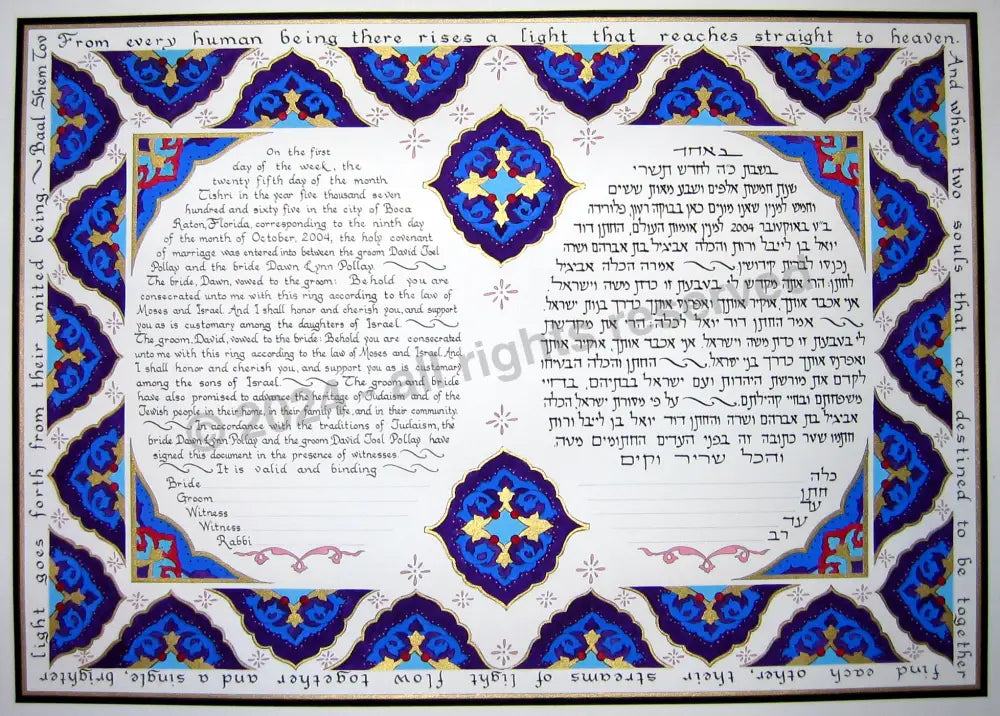 From every human being there rises a light that reaches straight to heaven.
And when two souls that are destined to be together
find each other, their streams of light flow together and a single, brighter
light goes forth from their united being. ~Baal Shem Tov
On the first
day of the week, the
twenty fifth day of the month
Tishri in the year five thousand seven
hundred and sixty five in the city of Boca
Raton, Florida, corresponding to the ninth day
of the month of October, 2004, the holy covenant
of marriage was entered into between the groom David Joel
Pollay and the bride Dawn Lynn Pollay
The bride, Dawn, vowed to the groom: Behold you are
consecrated unto me with this ring according to the law of
Moses and Israel. And I shall honor and cherish you, and support
you as is customary among the daughters of Israel.
The groom, David, vowed to the bride: Behold you are consecrated
unto me with this ring according to the law of Moses and Israel. And
I shall honor and cherish you, and support you as is customary
among the sons of Israel. The groom and bride
have also promised to advance the heritage of Judaism and of the
Jewish people in their home, in their family life, and in their community.
In accordance with the traditions of Judaism, the
bride Dawn Lynn Pollay and the groom David Joel Pollay have
signed this document in the presence of witnesses.
It is valid and binding
Bride
Groom
Witness
Witness
Rabbi
באחד
בשבת כ"ה לחדש תשרי
שנת חמשת אלפים ושבע מאות ששים
וחמש למנין שאנו מונים כאן בבוקה רטון, פלורידה
באוקטובר 2004 למנין אומות העולם, החתן דוד
יואל בן לייבל ורות והכלה אביגיל בת אברהם ושרה
נכנסו לברית קידושין. אמרה הכלה אביגיל
לחתן: הרי אתה מקודש לי בטבעת זו כדת משה וישראל.
אני אכבד אותך, אוקיר אותך, ואפרנס אותך כדרך בנות ישראל.
אמר החתן דוד יואל לכלה: הרי את מקודשת
לי בטבעת זו כדת משה וישראל. אני אכבד אותך, אוקיר אותך
ואפרנס אותך כדרך בני ישראל. החתן והכלה הבטיחו
לקדם את מורשת היהדות ועם ישראל בבתיהם, בחיי
משפחתם ובחיי קהילתם. על פי מסורת ישראל הכלה
אביגיל בת אברהם ושרה והחתן דוד יואל בן לייבל ורות
חתמו שטר כתובה זה בפני העדים החתומים מטה.
והכל שריר וקים
כלה
חתן
עד
עד
רב
© 2024 - all rights reserved